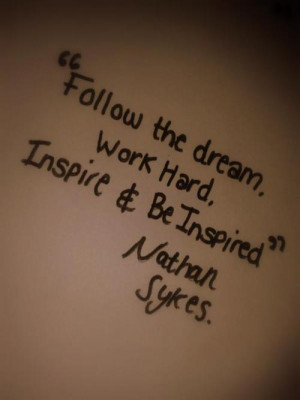 “Follow the dream.
Work Hard,
Inspire & Be Inspired”
Nathan
Sykes.